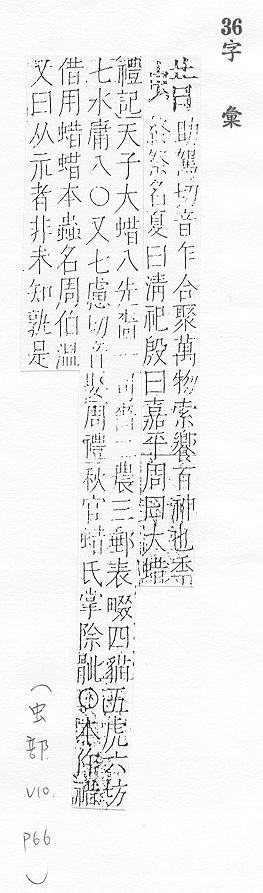 36
字彙
助駕切音乍合聚萬物索饗百神也
終祭名夏曰清祀殷曰嘉平周曰大蜡
禮記天子大蜡八先嗇一司嗇二農三郵表畷四貓五虎六坊
七水庸八〇又七慮切音娶周禮秋官蜡氏掌除骴〇本作䄍
借用蜡蜡本蟲名周伯溫
又曰从示者非未知孰是
(虫部. V10. P66)